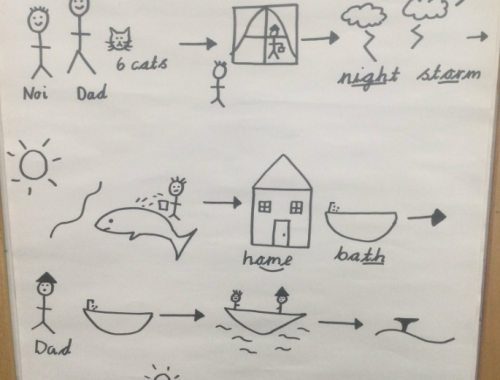 6 cats
Noi Dad
night storm
home bath
Dad